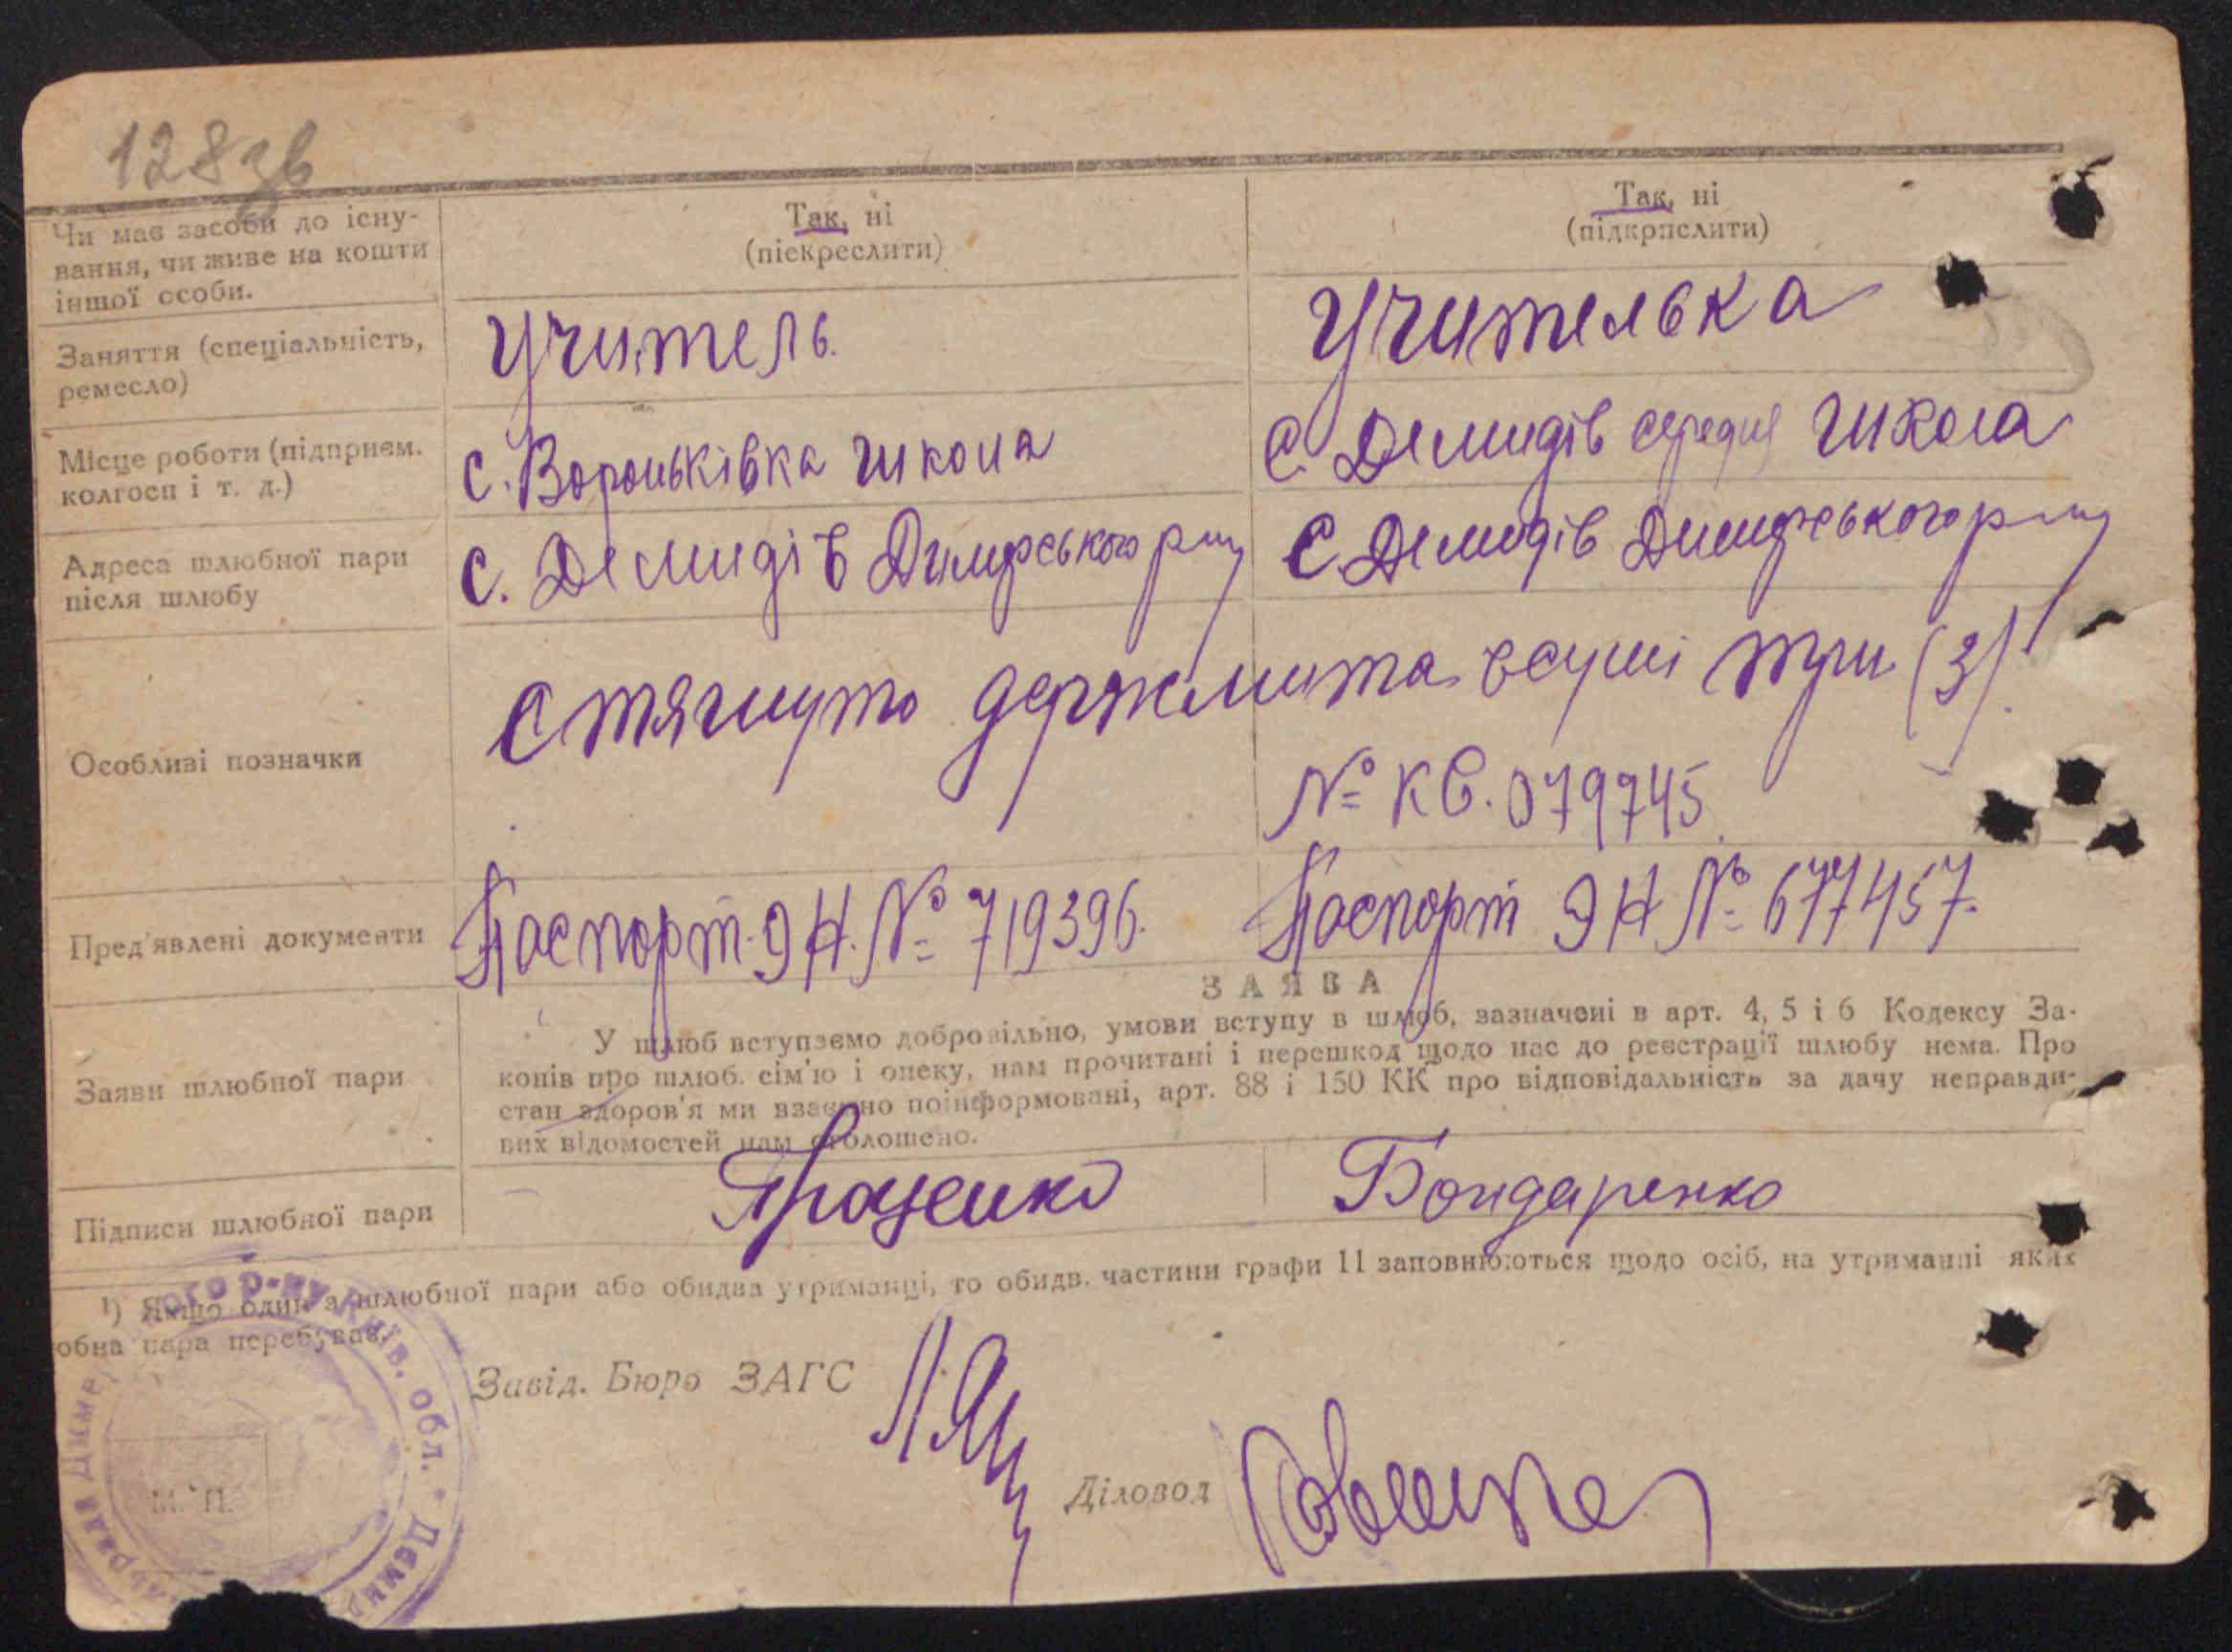 128 зв
Чи має засоби до існу-
вання, чи живе на кошти
іншої особи.
Так, ні
(піекреслити)
Так, ні
(підкрпслити)
Заняття (спеціальність,
ремесло)
Учитель.
Учителька
Місце роботи (підприєм.
колгосп і т. д.)
с. Вороньківка школа
с. Демидів середня школа
Адреса шлюбної пари
після шлюбу
с. Демидів Димерського р-ну
с. Демидів Димерського р-ну
Особливі позначки
Стягнуто держмита всумі три (3).
№ кв. 079745
Пред'явлені документи
Паспорт ЭН. № 719396.
Паспорт ЭН № 677457.
Заяви шлюбної пари
ЗАЯВА
У шлюб вступаємо добровільно, умови вступу в шлюб, зазначені в арт. 4, 5 і 6 Кодексу За-
конів про шлюб. сім'ю і опеку, нам прочитані і перешкод щодо нас до реєстрації шлюбу нема. Про
стан здоров'я ми взаємно поінформовані, арт. 88 і 150 КК про відповідальність за дачу неправди-
вих відомостей нам оголошено.
Підписи шлюбної пари
Проценко
Бондаренко
¹) Якщо один з шлюбної пари або обидва утриманці, то обидв. частини графи 11 заповнюються щодо осіб, на утриманні яких
обна пара перебуває.
Завід. Бюро ЗАГС
Діловод
М. П.
ого р-ну Київ. обл. * Деми